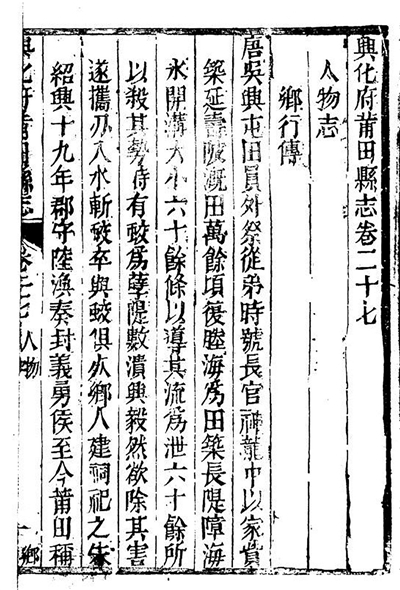 興化府莆田縣志卷二十七
人物志
鄉行傳
唐吳興屯田員外祭從弟時號長官神龍中以家貲
築延壽陂漑田萬餘頃復塍海爲田築長隄障海
水開溝大小六十餘條以導其流爲泄六十餘所
以殺其勢時有蛟爲孽隄數潰興毅然欲除其害
遂攜刃入水斬蛟卒與蛟俱死鄉人建祠祀之宋
紹興十九年郡守陸渙奏封義勇侯至今莆田稱
興化府莆田縣志
卷二七 人物
一
鄉